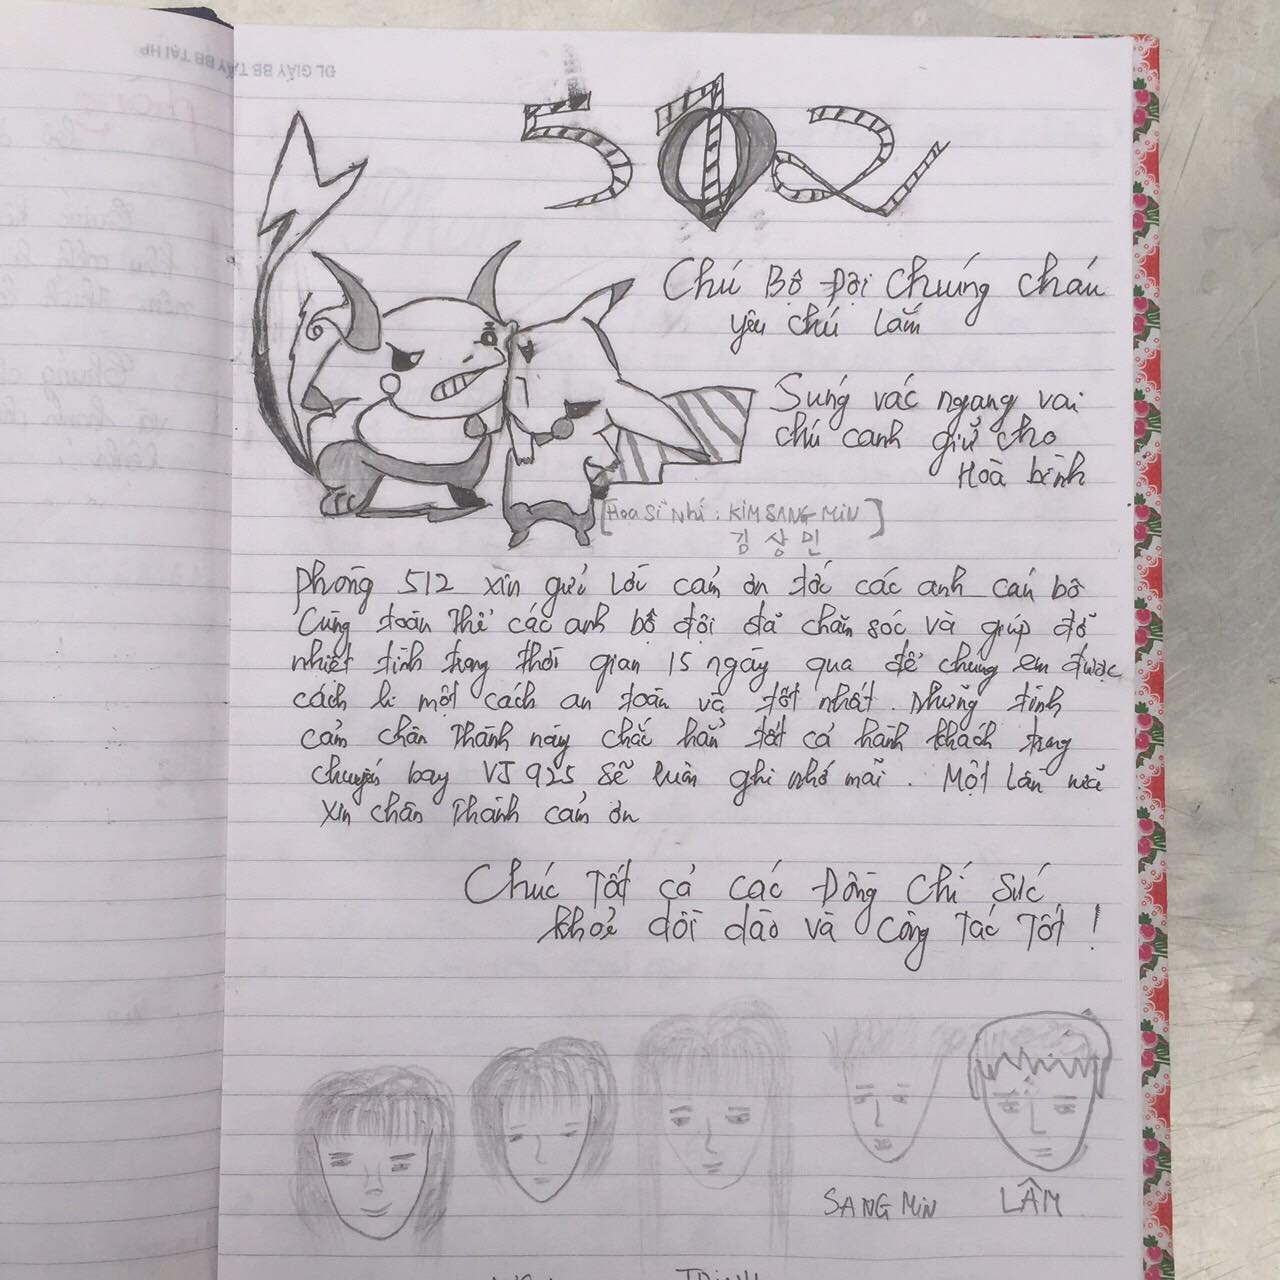 512
Chú Bộ Đội chúng cháu
yêu chú lắm
Súng vác ngang vai
chú canh giữ cho
Hoà bình
[Hoạ Sĩ Nhí: KIM SANG MIN]
김 상 민
Phòng 512 xin gửi lời cảm ơn tới các anh cán bộ
Cùng toàn thể các anh bộ đội đã chăm sóc và giúp đỡ
nhiệt tình trong thời gian 15 ngày qua để chúng em được
cách li một cách an toàn và tốt nhất. Những tình
cảm chân thành này chắc hẳn tất cả hành khách trong
chuyến bay VJ 925 sẽ luôn ghi nhớ mãi. Một lần nữa
xin chân thành cảm ơn
Chúc Tất cả các Đồng Chí Sức
khoẻ dồi dào và Công Tác Tốt!
SANG MIN LÂM
TRINH